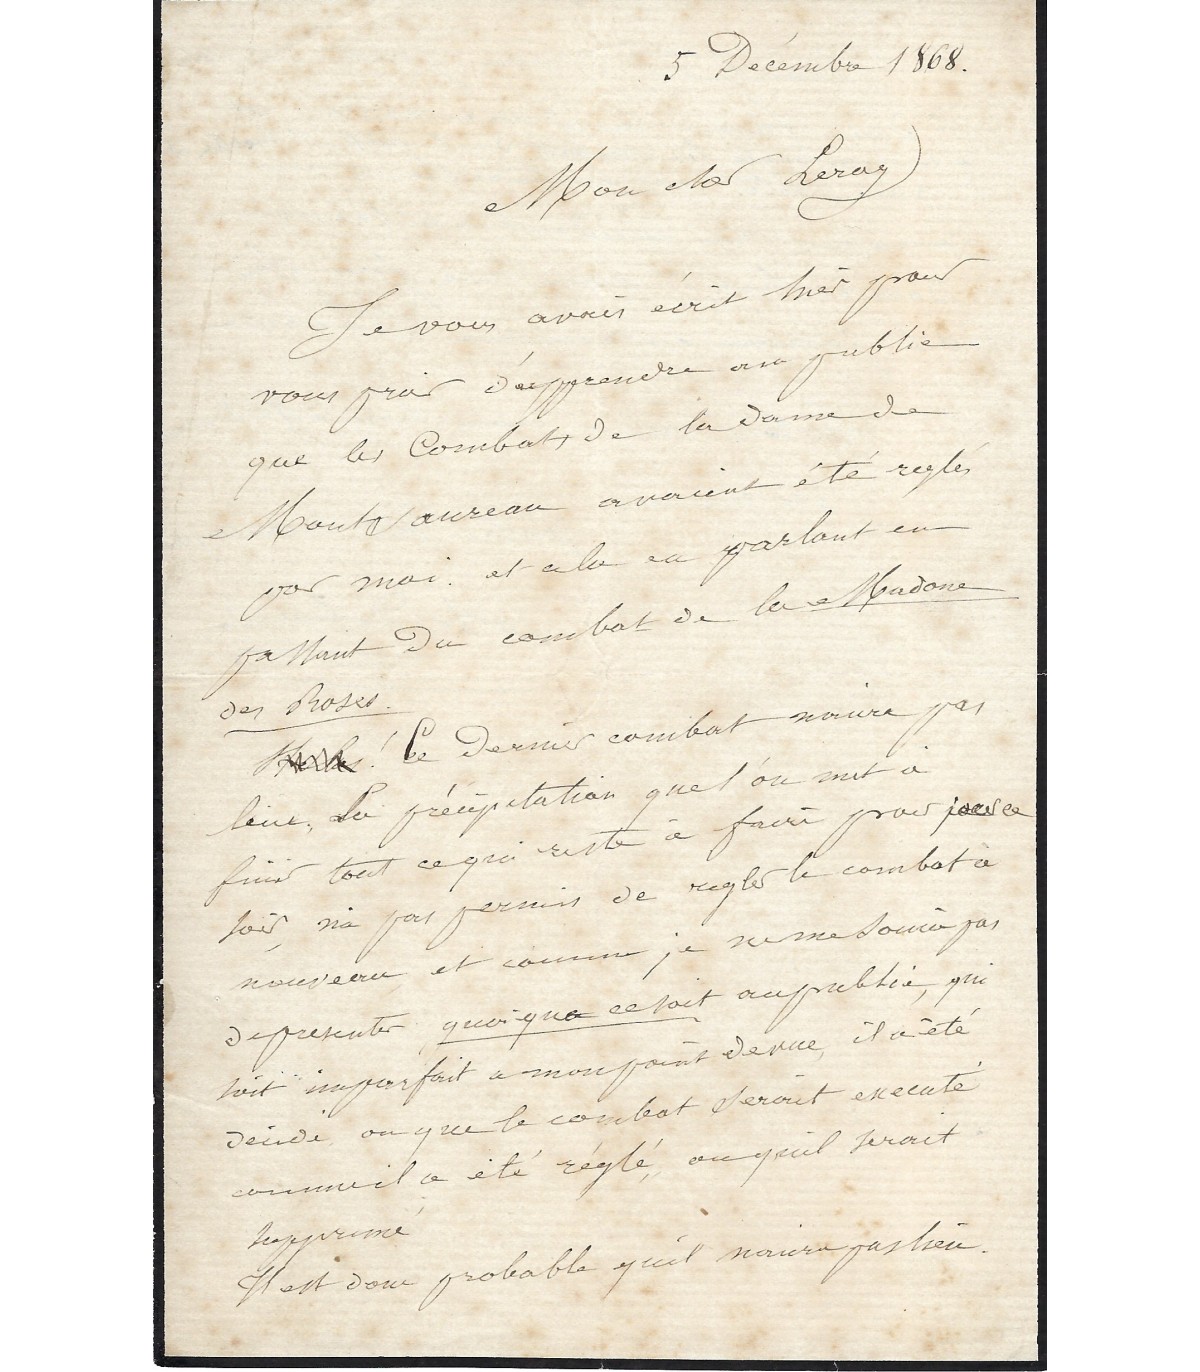 5 Décembre 1868.
Mon cher Leroy
Je vous avais écrit hier pour
vous prier d'apprendre au public
que les Combats de la dame de
Montsaureau avaient été reglés
par moi. et cela en parlant en
passant du combat de la Madone
des Roses.
! Ce dernier combat n'aura pas
lieu. La précipitation que l'on met à
finir tout ce qui reste à faire pour jouer ce
soir, n'a pas permis de regler le combat à
nouveau, et comme je ne me soucie pas
de presenter, quoi que ce soit au public, qui
soit imparfait a mon point de vue, il a été
décidé, ou que le combat serait executé
comme il a été réglé, ou qu'il serait
supprimé
Il est donc probable qu'il n'aura pas lieu.